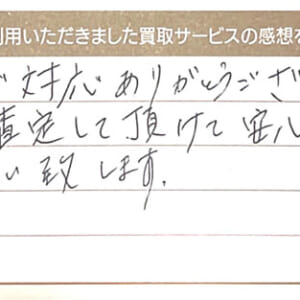 利用いただきました買取サービスの感想を
ご対応ありがとうござ
査定して頂けて安心
い致します.